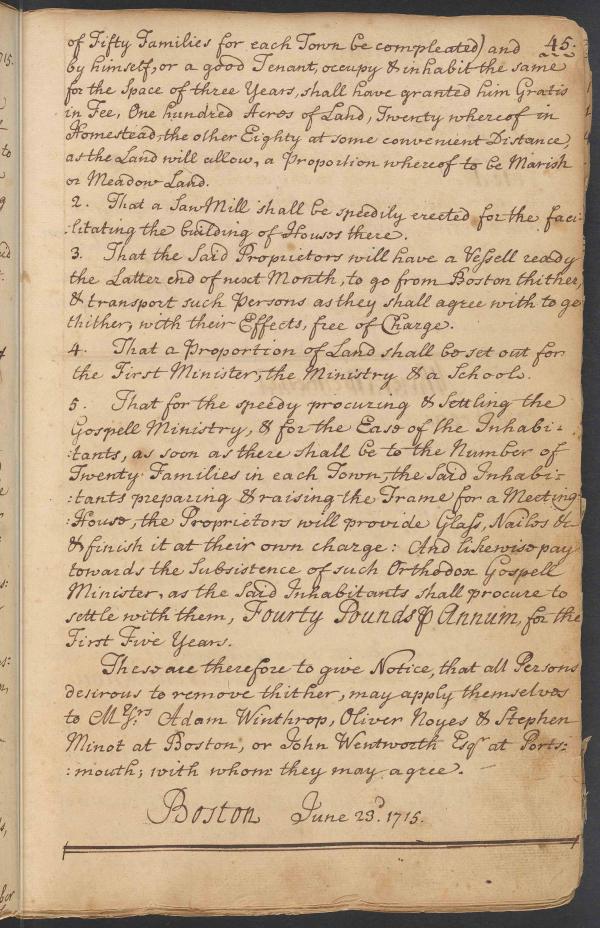 45.
of Fifty Families for each Town be compleated) and
by himself, or a good Tenant, occupy & inhabit the same
for the Space of three Years, shall have granted him Gratis
in Fee, One hundred Acres of Land, Twenty whereof in
Homestead, the other Eighty at some convenient Distance,
as the Land will allow, a Proportion whereof to be Marish
or Meadow Land.
2. That a Saw Mill shall be speedily erected for the faci-
:litating the building of Houses there.
3. That the Said Proprietors will have a Vessell ready
the Latter end of next Month, to go from Boston thither,
& transport such Persons as they shall agree with to go
thither, with their Effects, free of Charge.
4. That a Proportion of Land shall be set out for
the First Minister, the Ministry & a School.
5. That for the speedy procuring & Settling the
Gospell Ministry, & for the Ease of the Inhabi-
:tants, as soon as there shall be to the Number of
Twenty Families in each Town, the Said Inhabi-
:tants preparing & raising the Frame for a Meeting:
:House, the Proprietors will provide Glass, Nailes &c
& finish it at their own charge: And likewise pay
towards the Subsistence of such Orthodox Gospell
Minister, as the Said Inhabitants shall procure to
settle with them, Fourty Pounds ⅌ Annum, for the
First Five Years.
These are therefore to give Notice, that all Persons
desirous to remove thither, may apply themselves
to Messrs Adam Winthrop, Oliver Noyes & Stephen
Minot at Boston, or John Wentworth Esqr at Ports:
:mouth; with whom they may agree.
Boston June 23d. 1715.